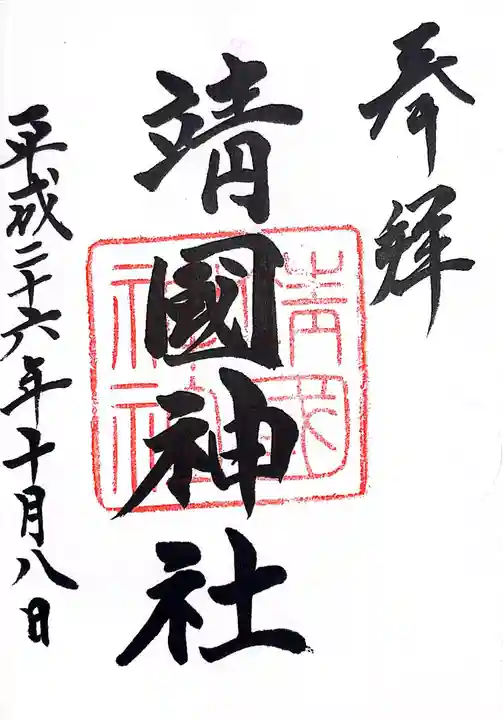 奉拝
靖國神社
靖国
神社
平成二十六年十月八日